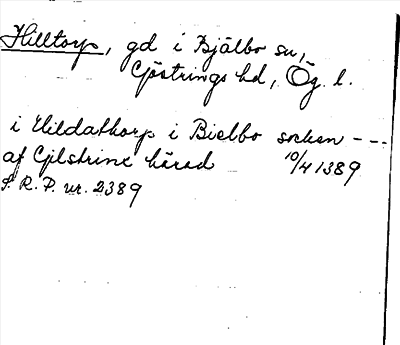 Hilltorp, gd i Bjälbo sn,
Göstrings hd, Ög. l.
i Hildathorp i Bielbo socken - - -
af Gilstrinx härad 10/4 1389
S. R. P. nr. 2389